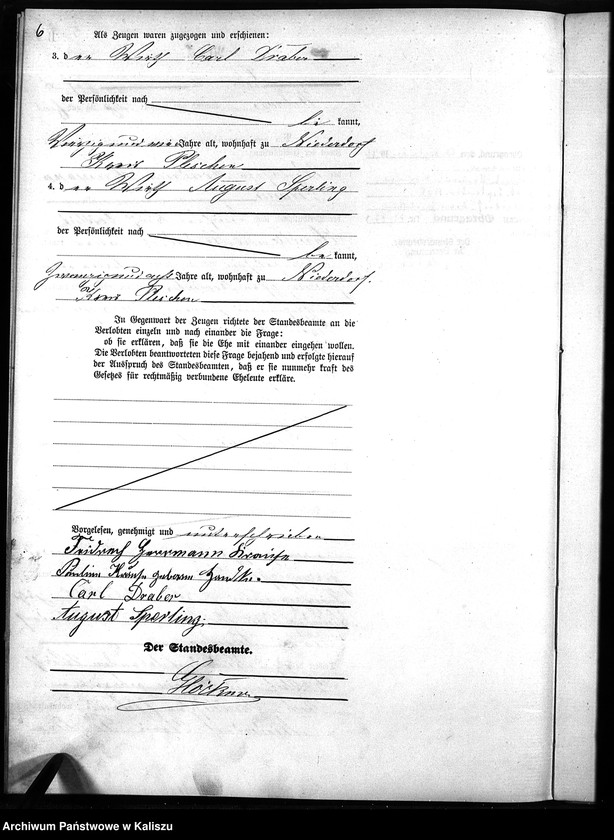 6
Als Zeugen waren zugezogen und erschienen:
3. der Wirth Carl Draber
der Persönlichkeit nach
be kannt,
Vierzig und vier Jahre alt, wohnhaft zu Niederdorf
Kreis Pleschen
4. der Wirth August Sperling
der Persönlichkeit nach
be kannt,
Zwanzig und acht Jahre alt, wohnhaft zu Niederdorf.
Kreis Pleschen
In Gegenwart der Zeugen richtete der Standesbeamte an die
Verlobten einzeln und nach einander die Frage:
ob sie erklären, daß sie die Ehe mit einander eingehen wollen.
Die Verlobten beantworteten diese Frage bejahend und erfolgte hierauf
der Ausspruch des Standesbeamten, daß er sie nunmehr kraft des
Gesetzes für rechtmäßig verbundene Eheleute erkläre.
Vorgelesen, genehmigt und unterschrieben
Herrmann Krause
Krause geborene
Carl Draber
August Sperling.
Der Standesbeamte.
Archiwum Państwowe w Kaliszu